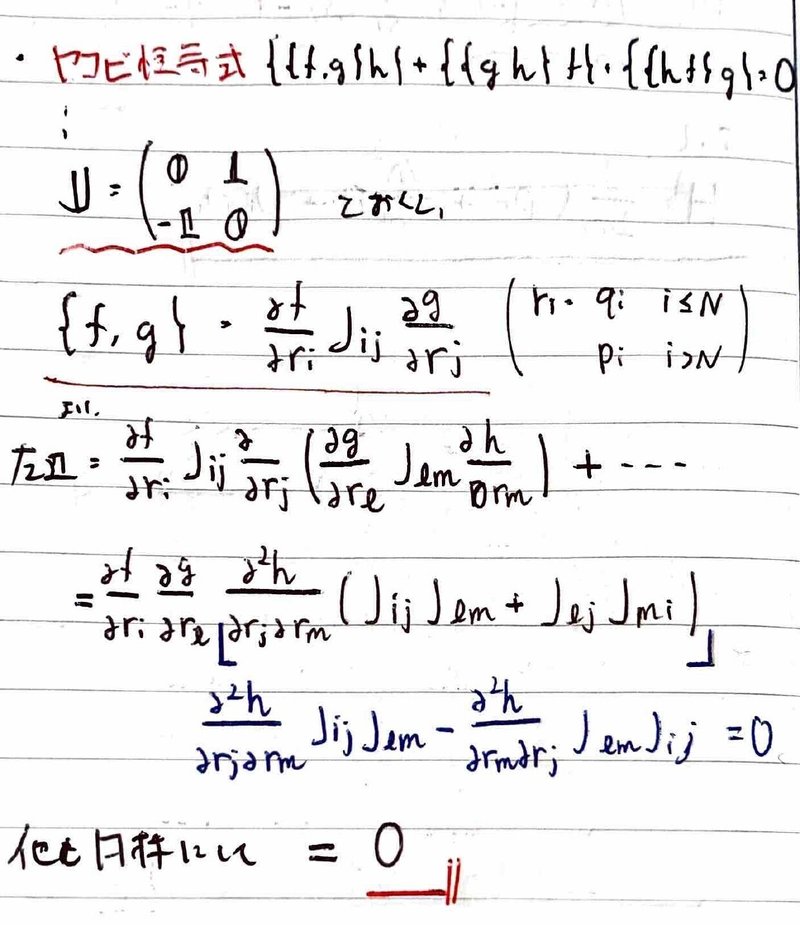 ・ヤコビ恒等式 {{f,g}h}+{{g h}f}+{{hf}g}=0
⋮
𝕁 = ( 0 1 ; -1 0 ) とおくと,
{f, g} = ∂f/∂ri Jij ∂g/∂rj ( ri = qi i≤N ; pi i>N )
より.
左辺 = ∂f/∂ri Jij ∂/∂rj (∂g/∂rℓ Jℓm ∂h/∂rm) + ---
= ∂f/∂ri ∂g/∂rℓ ∂²h/∂rj∂rm (Jij Jℓm + Jℓj Jmi)
∂²h/∂rj∂rm Jij Jℓm - ∂²h/∂rm∂rj Jℓm Jij = 0
他も同様にして = 0